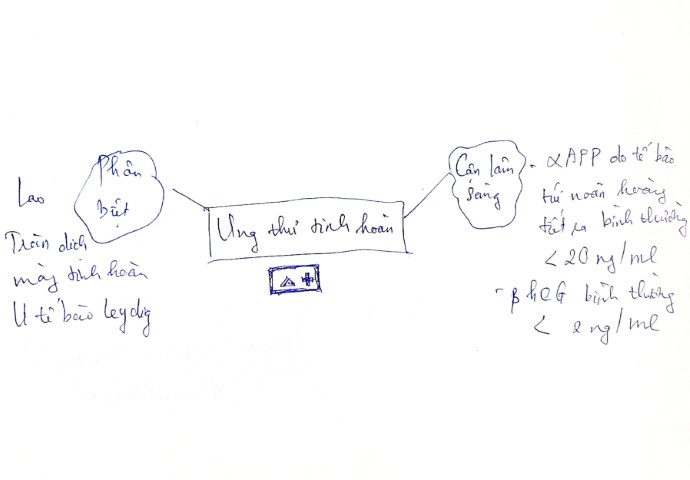 Phân
biệt
Lao
Tràn dịch
màng tinh hoàn
U tế bào leydig
Ung thư tinh hoàn
Cận lâm
sàng
- αAFP do tế bào
túi noãn hoàng
tiết ra bình thường
< 20 ng/ml
- β hCG bình thường
< 2 ng/ml